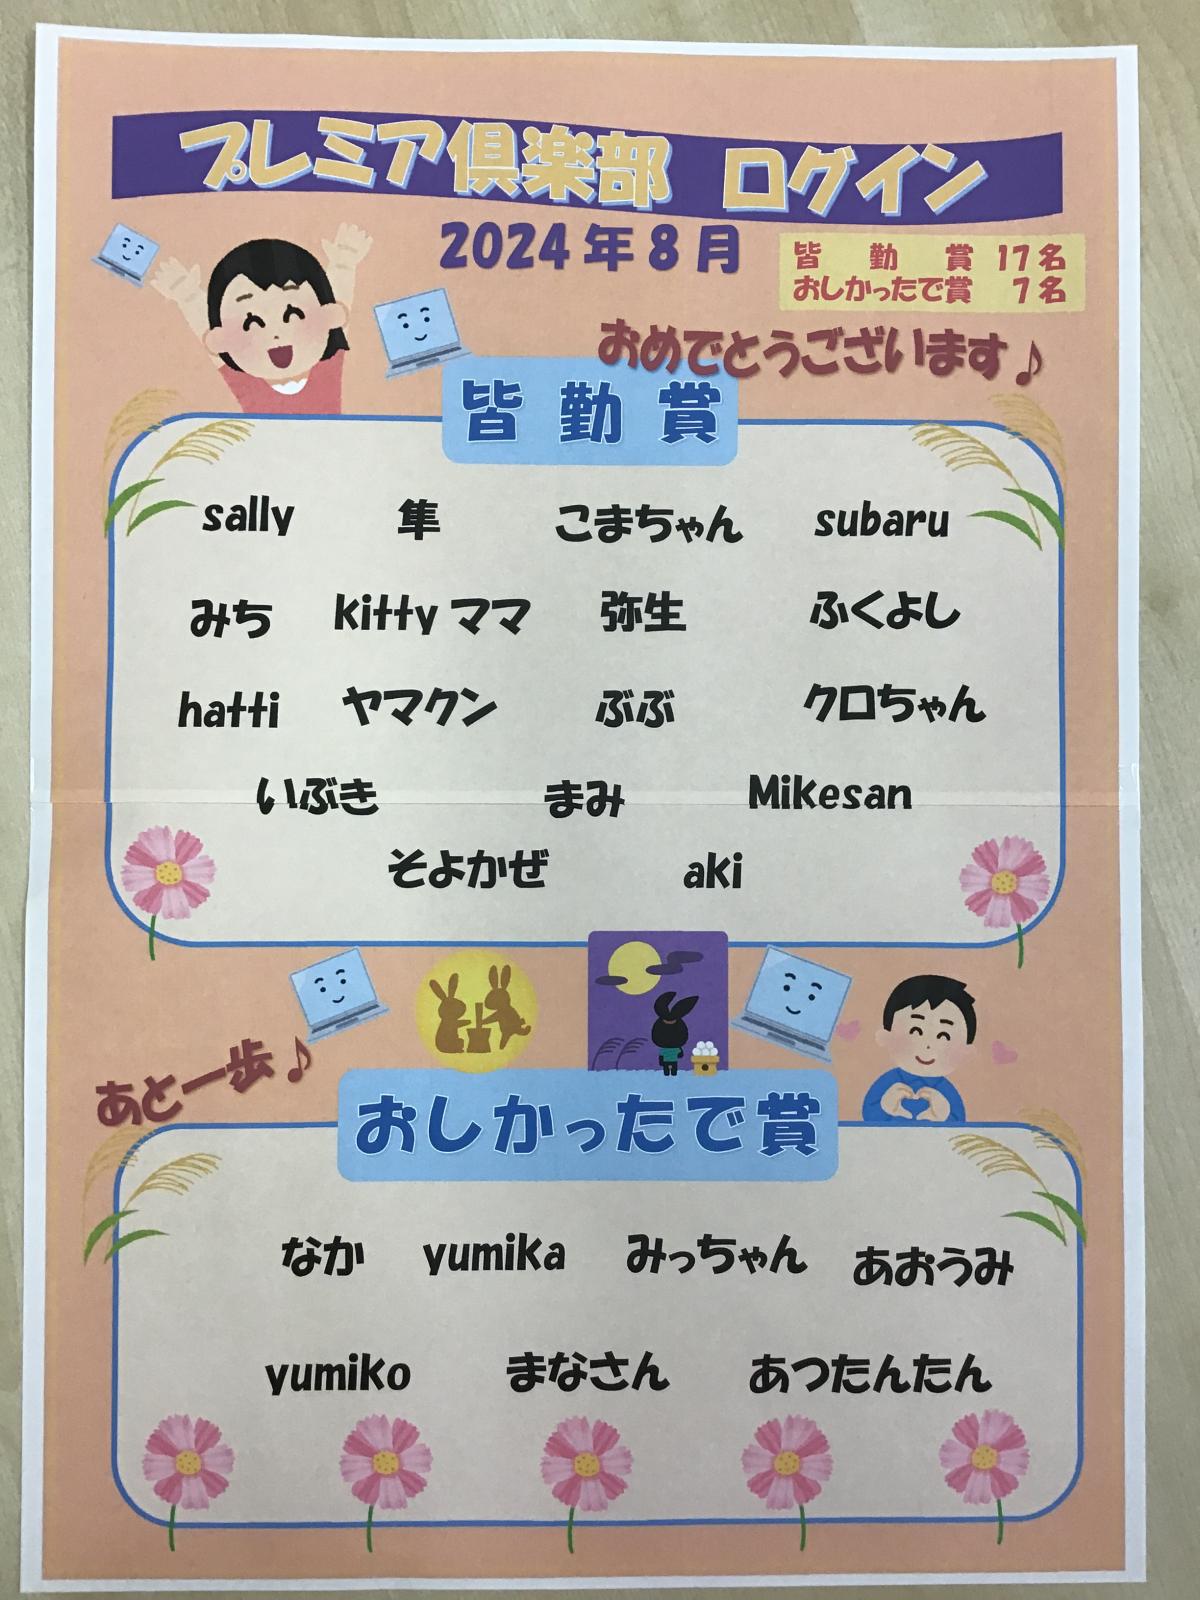 プレミア倶楽部 ログイン
2024年8月
皆勤賞 17名
おしかったで賞 7名
おめでとうございます♪
皆勤賞
sally 隼 こまちゃん subaru
みち kitty ママ 弥生 ふくよし
hatti ヤマクン ぶぶ クロちゃん
いぶき まみ Mikesan
そよかぜ aki
あと一歩♪
おしかったで賞
なか yumika みっちゃん あおうみ
yumiko まなさん あつたんたん